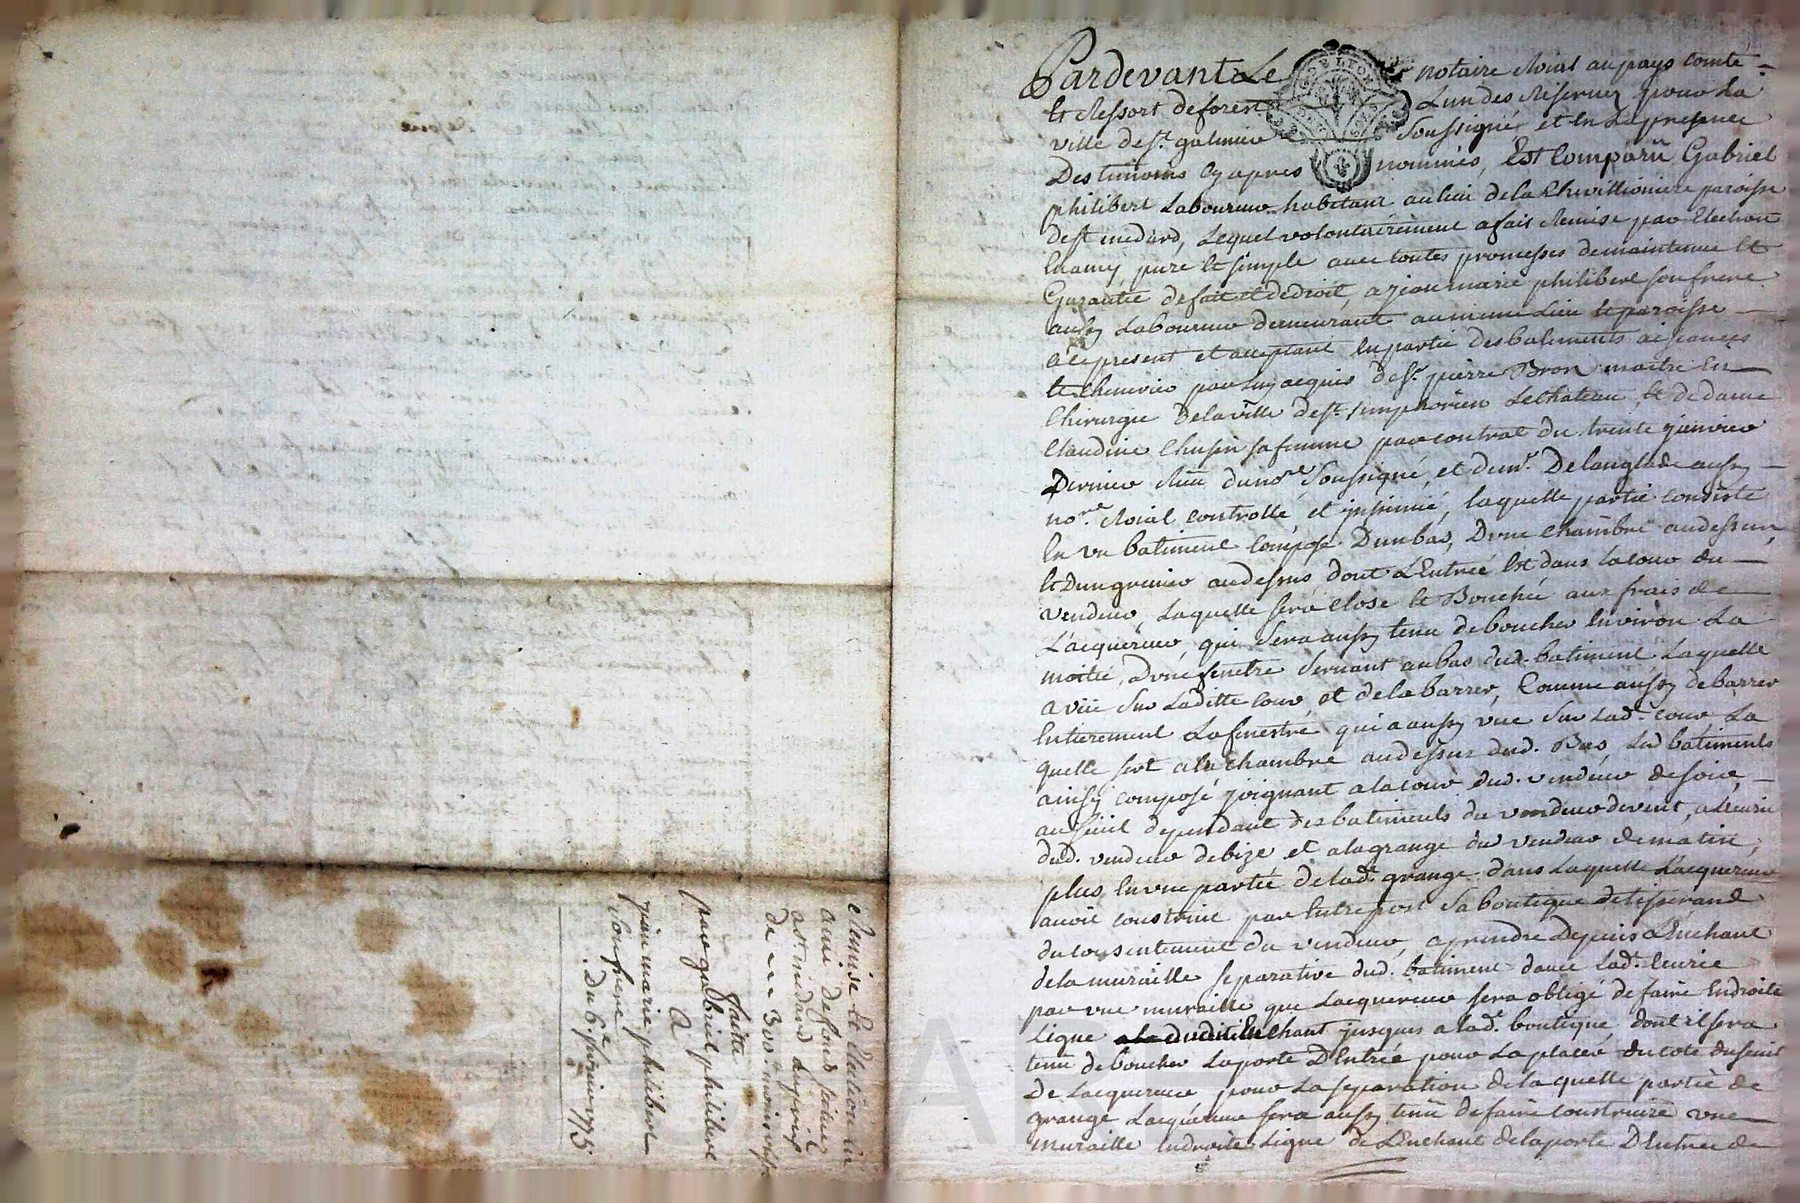 Pardevant Le notaire Roial au pays comté
et Ressort deforest Lun des Reservez pour La
ville de st. galmier Soussigné et en La presence
Des temoins cy apres nommés, Est Comparu Gabriel
philibert Laboureur habitant au lieu de la Chevillioniere paroisse
de st medard, Lequel volontairement a fait Remise par Election
En amy, pure et simple avec toutes promesses de maintenue et
Garantie de fait et de droit, a jean marie philibert son frere
aussy Laboureur demeurant au meme Lieu et paroisse
a ce present et acceptant En partie des batiments aisances
et Chenevier par luy acquis de Sr. pierre Bron maitre En
Chirurgie de la ville de st. simphorien Le chateau et de dame
Claudine Chusin sa femme par contrat du trente janvier
Dernier Reçu du nore. Soussigné, et de mr. De langlade aussy
nore. Roial controllé et insinué, laquelle partie consiste
En un batiment composé Dun bas, Dune chambre au dessus
et Dun grenier au dessus dont L'Entrée Est dans la cour du
vendeur, Laquelle sera close et Bouchée aux frais de
L'acquereur, qui sera aussy tenu de boucher Environ La
moitié, d'une fenetre servant au bas dud. batiment Laquelle
a vüe sur Laditte cour, et de la barrer, Comme aussy de barrer
Entierement La fenestre qui a aussy vüe sur lad. cour La
quelle sert a la chambre au dessus dud. Bas Led batiments
ainsy composé joignant a la cour dud. vendeur de soire,
au seuil dependant des batiments du vendeur de vent, a Lecurie
dud. vendeur de bize et a la grange du vendeur de matin;
plus En une partie de lad. grange dans Laquelle L'acquereur
avoit construit par Entrepost Sa boutique de tisserand
du consentement du vendeur, a prendre Depuis L'Enchant
de la muraille separative dud. batiment d'avec Lad. Ecurie
par une muraille que Lacquereur sera obligé de faire En droite
Ligne dudit Enchant jusques a lad. boutique dont il sera
tenu de boucher La porte D'Entrée pour La placer du coté du seuil
de Lacquereur pour La separation de la quelle partie de
grange Lacquereur sera aussy tenu de faire construire une
muraille En droite Ligne de L'Enchant de la porte D'Entrée de
Remise et Election En
ami de fond située
a st. medard Le prix
de 300
faitte
par gabriel philibert
A
jean marie philibert
Son frere
Du 6e. fevrier 1775.